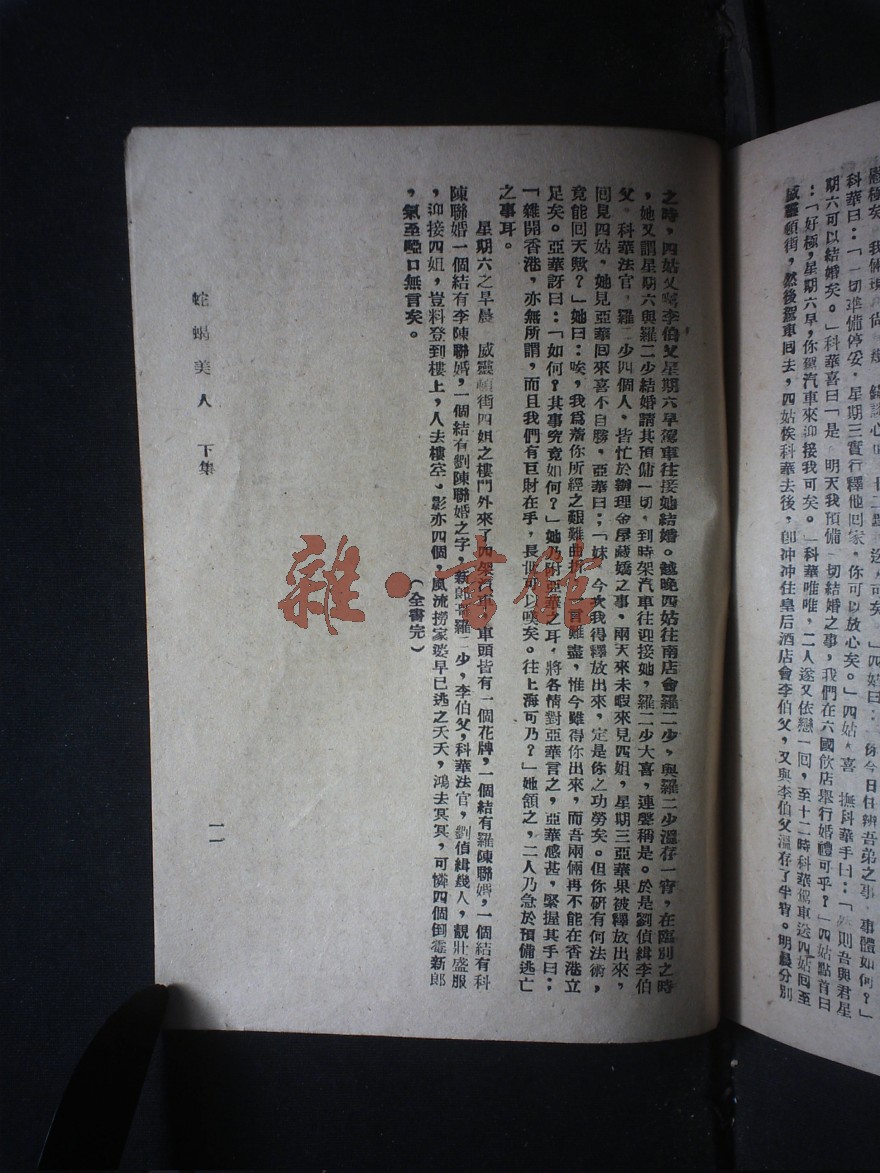 科華曰：「一切準備停妥，星期三實行釋他回家，你可以放心矣。」四姑
期六可以結婚矣。」科華喜曰「是　明天我預備一切結婚之事，我們在六國飲店舉行婚禮可乎？」四姑點首曰
：「好極，星期六早，你駕汽車來迎接我可矣。」科華唯唯，二人遂又依戀一回，至十二時科華駕車送四姑回至
威靈頓街，然後駕車回去，四姑俟科華去後，卽冲冲往皇后酒店會李伯父，又與李伯父溫存了半宵。明晨分別
之時，四姑又囑李伯父星期六早駕車往接她結婚。越晚四姑往南店會羅二少，與羅二少溫存一宵，在臨別之時
，她又謂星期六與羅二少結婚請其預備一切，到時架汽車往迎接她，羅二少大喜，連聲稱是。於是劉偵緝李伯
父，科華法官，羅二少四個人，皆忙於辦理金屋藏嬌之事，兩天來未暇來見四姐，星期三亞華果被釋放出來，
回見四姑，她見亞華回來喜不自勝，亞華曰：「妹，今次我得釋放出來，定是你之功勞矣。但你研有何法術，
竟能回天歟？」她曰：唉，我爲着你所經之艱難曲折，一言難盡，惟今雖得你出來，而吾兩倆再不能在香港立
足矣。亞華訝曰：「如何？其事究竟如何？」她乃附亞華之耳，將各情對亞華言之，亞華感甚，緊握其手曰：
「離開香港，亦無所謂，而且我們有巨財在手，長便可以嘆矣。往上海可乃？」她頷之，二人乃急於預備逃亡
之事耳。
星期六之早晨　威靈頓街四姐之樓門外來了四架汽車，車頭皆有一個花牌，一個結有羅陳聯婚，一個結有科
陳聯婚一個結有李陳聯婚，一個結有劉陳聯婚之字，新郎哥羅二少，李伯父，科華法官，劉偵緝幾人，靚壯盛服
，迎接四姐，豈料登到樓上，人去樓空，影亦四個，風流撈家婆早已逃之夭夭，鴻去冥冥，可憐四個倒霉新郎
，氣至啞口無言矣。
（全書完）
蛇蝎美人　下集
一一
雜·書館